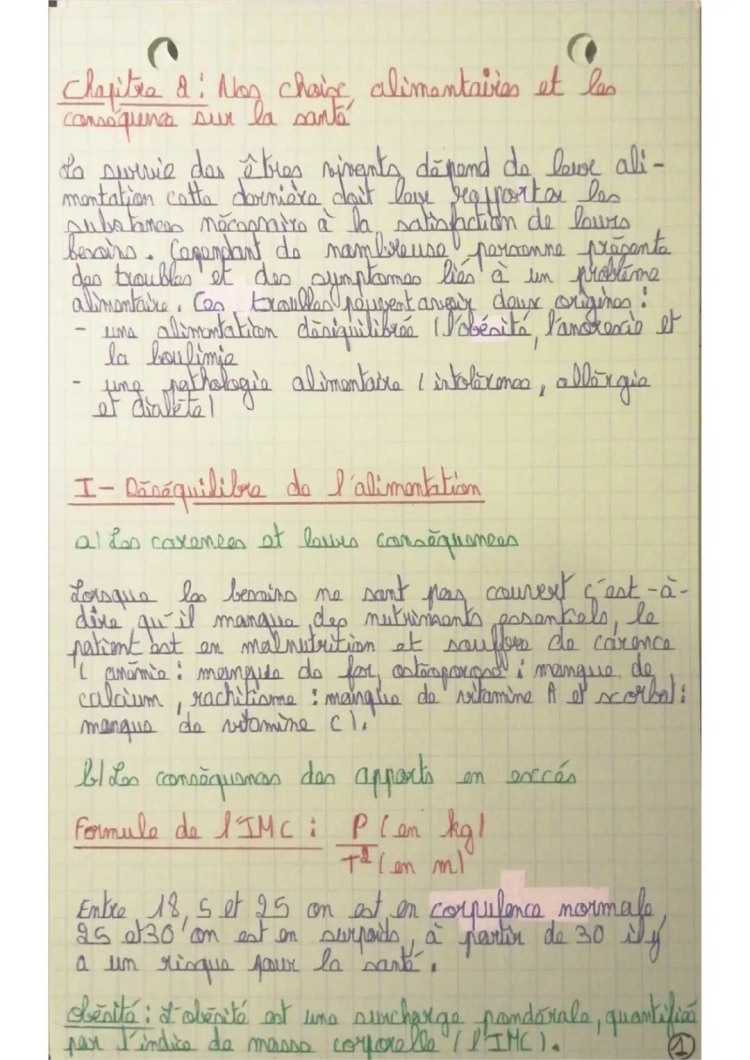 Chapitre 2 : Nos choix alimentaires et les
conséquence sur la santé
La survie des êtres vivants dépend de leur ali-
mentation cette dernière doit leur rapporter les
substances nécessaire à la satisfaction de leurs
besoins. Cependant de nombreuse personne présente
des troubles et des symptomes liés à un problème
alimentaire. Ces troubles peuvent avoir deux origines :
- une alimentation déséquilibrée (l'obésité, l'anorexie et
la boulimie
- une pathologie alimentaire (intolérence, allérgie
et diabète)
I- Déséquilibre de l'alimentation
a) Les carences et leurs conséquences
Lorsque les besoins ne sont pas couvert c'est-à-
dire qu'il manque des nutriments essentiels, le
patient est en malnutrition et souffre de carence
( anémie : manque de fer, : manque de
calcium, rachitisme : manque de vitamine A et scorbut :
manque de vitamine C).
b) Les conséquences des apports en excés
Formule de l'IMC : P (en kg)
T² (en m)
Entre 18,5 et 25 on est en corpulence normale,
25 et 30 on est en surpoids, à partir de 30 il y
a un risque pour la santé.
Obésité : L'obésité est une surcharge pondérale, quantifiée
par l'indice de masse corporelle (l'IMC).
1